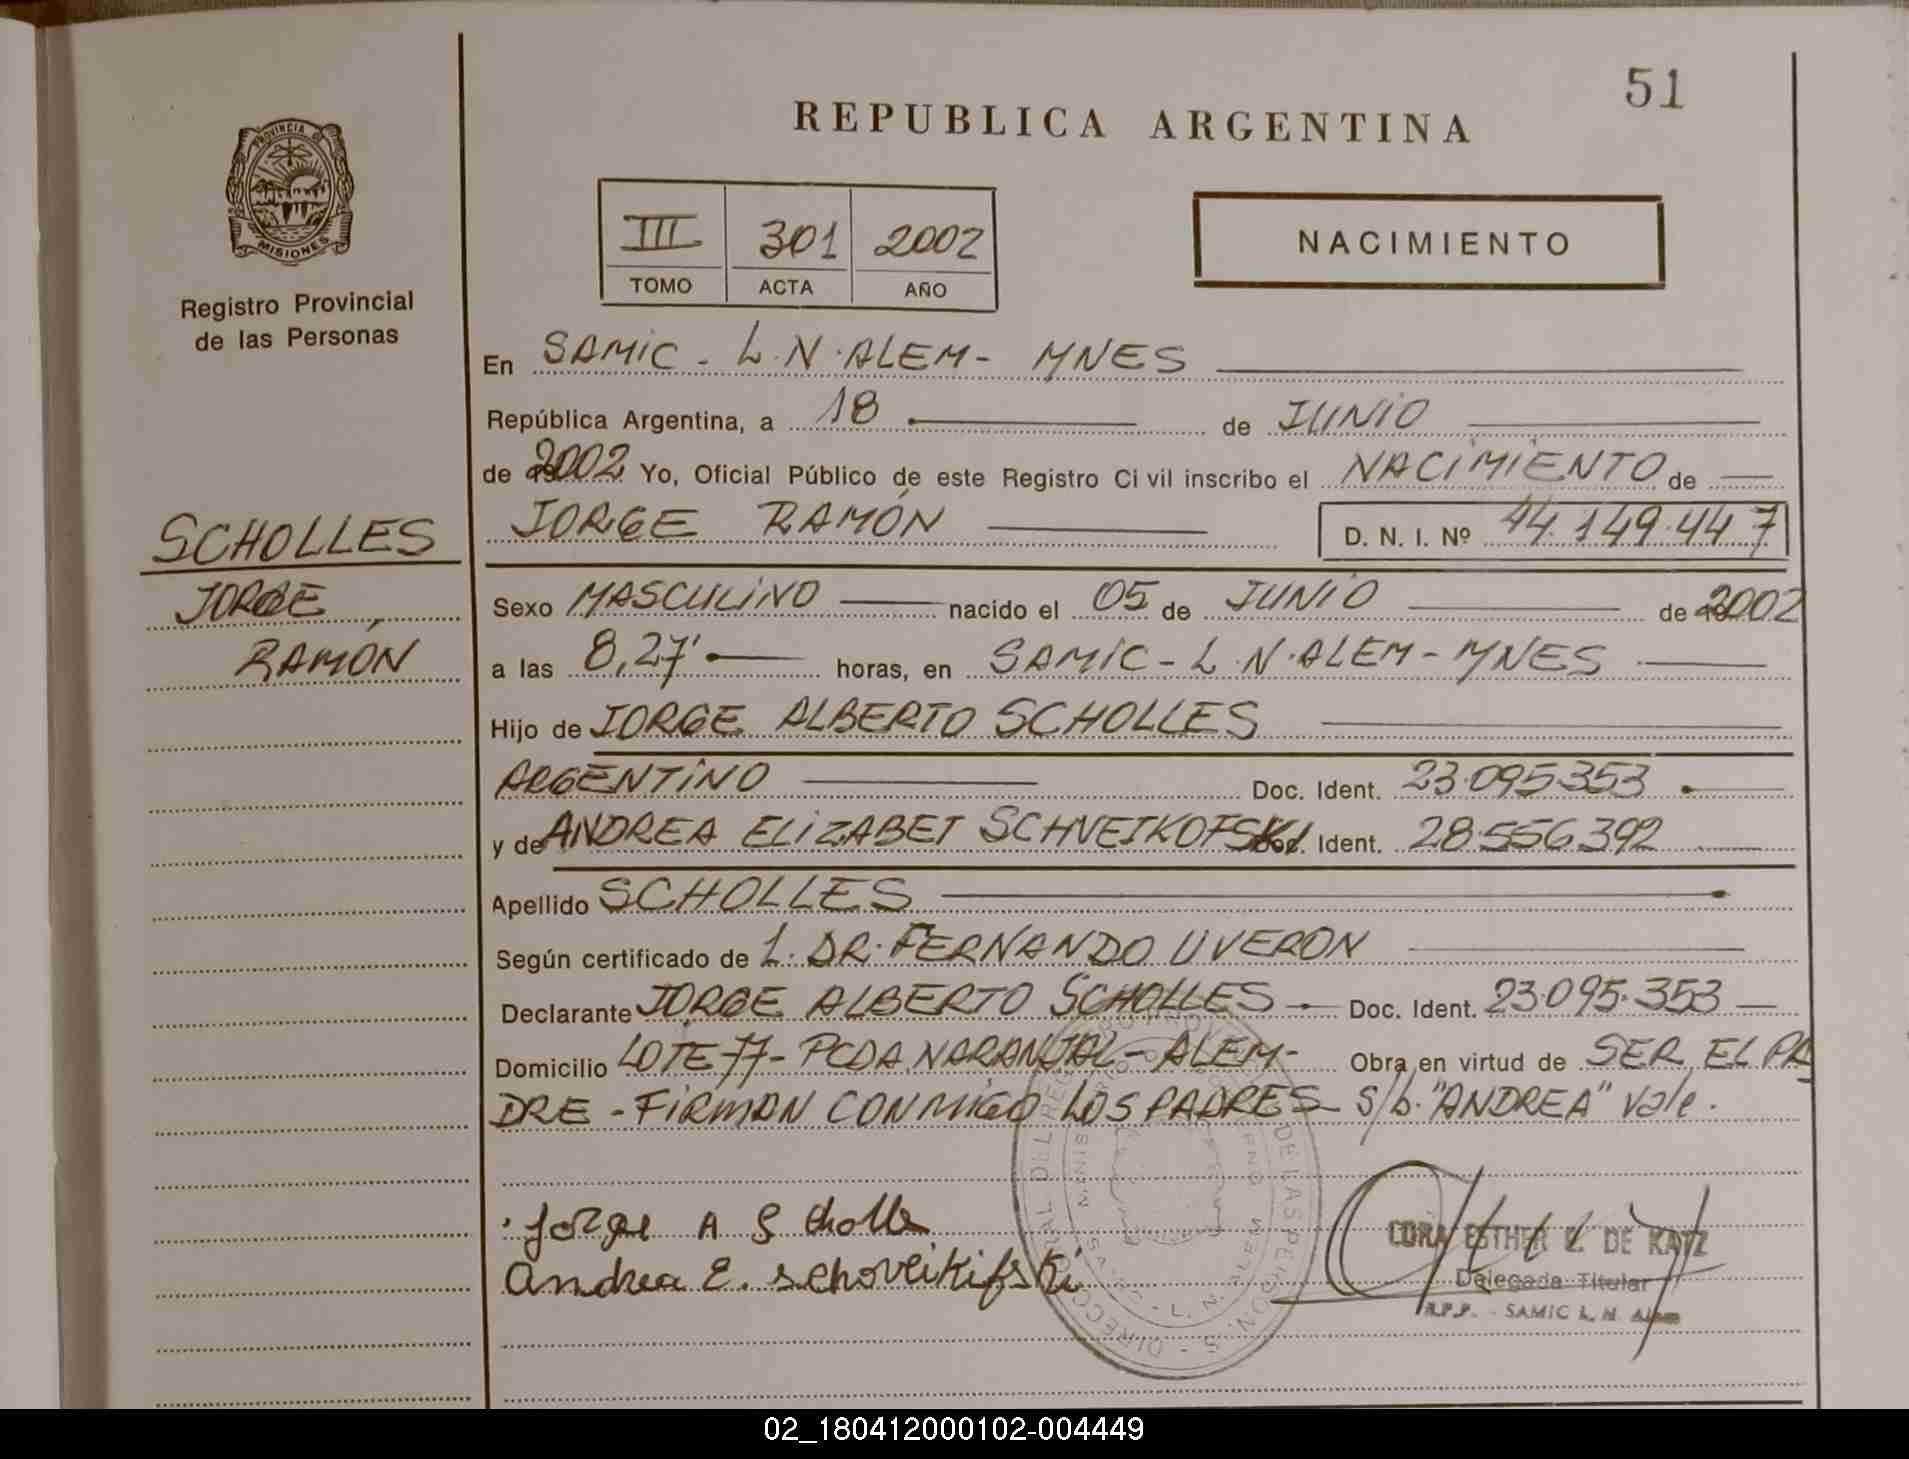 51
REPUBLICA ARGENTINA
PROVINCIA DE
MISIONES
Registro Provincial
de las Personas
III 301 2002
TOMO ACTA AÑO
NACIMIENTO
En SAMIC - L.N.ALEM - MNES
República Argentina, a 18 de JUNIO
de 2002 Yo, Oficial Público de este Registro Civil inscribo el NACIMIENTO de
JORGE RAMÓN D. N. I. Nº 44.149.447
SCHOLLES
JORGE
RAMÓN
Sexo MASCULINO nacido el 05 de JUNIO de 2002
a las 8,27' horas, en SAMIC - L.N.ALEM - MNES
Hijo de JORGE ALBERTO SCHOLLES
ARGENTINO Doc. Ident. 23.095.353
y de ANDREA ELIZABET Doc. Ident. 28.556.392
Apellido SCHOLLES
Según certificado de L. DR. FERNANDO UVERON
Declarante JORGE ALBERTO SCHOLLES - Doc. Ident. 23.095.353
Domicilio LOTE 77 - PCDA.NARANJAL - ALEM - Obra en virtud de SER EL PA
DRE - FIRMAN CONMIGO LOS PADRES - S/b. "ANDREA" Vale.
Jorge A Scholles
Andrea E.
CORA ESTHER DE KATZ
Delegada Titular
R.P.P. - SAMIC L. N. Alem
02_180412000102-004449